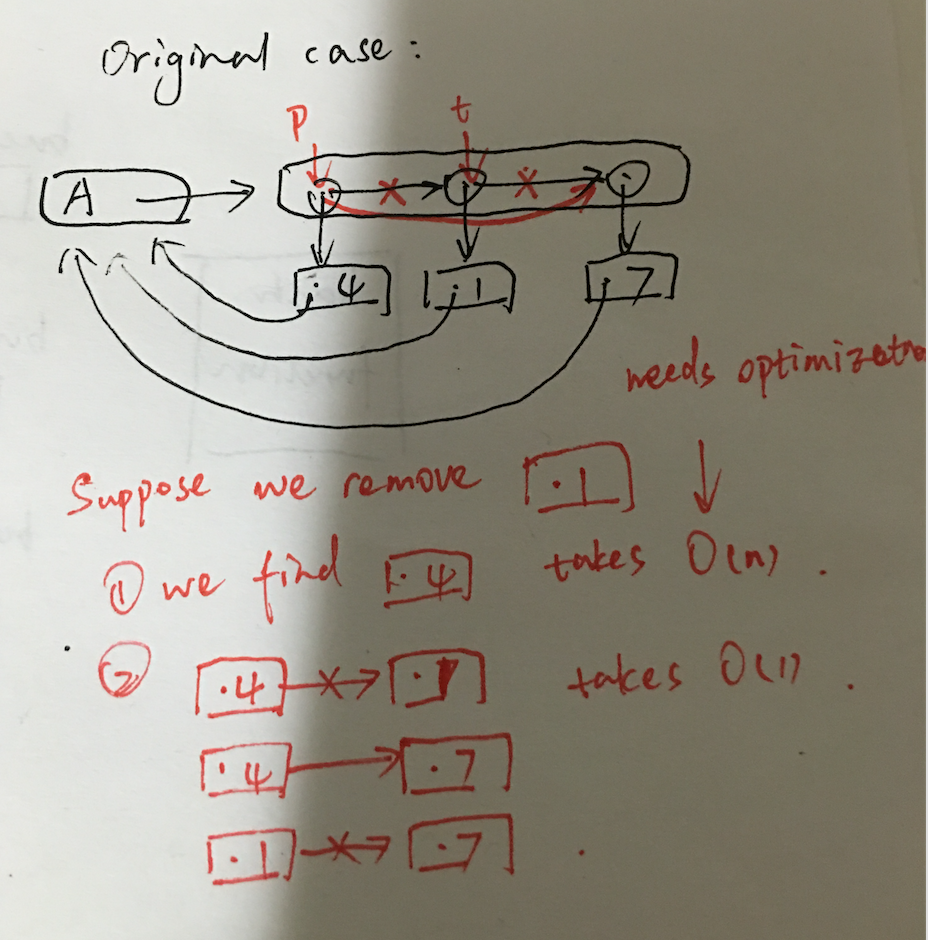 Original case :
P t
A
.4 .1 .7
needs optimizatio
Suppose we remove .1
① we find .4 takes O(n) .
② .4 .1 takes O(1) .
.4 .7
.1 .7 .